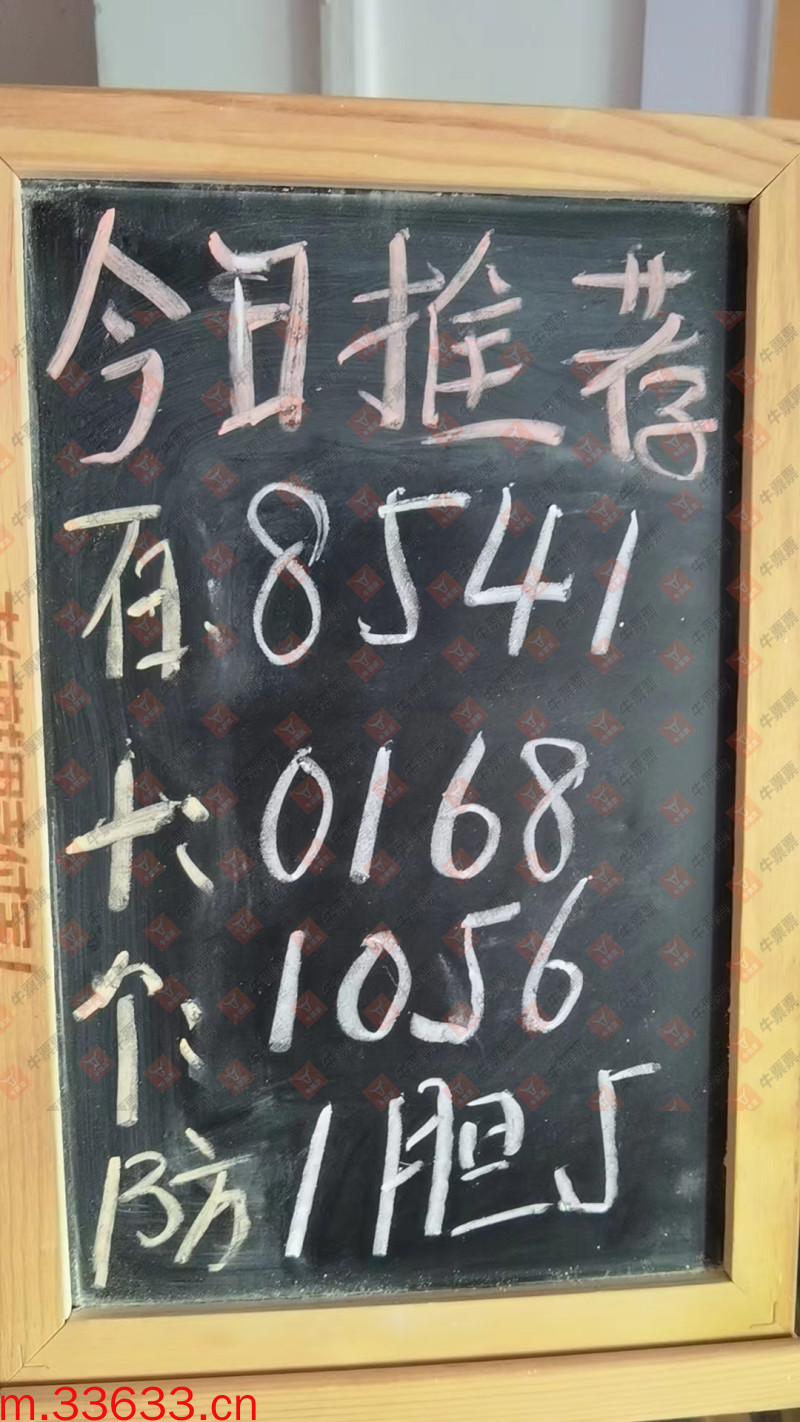 今日推荐
百:8541
十:0168
个:1056
防1胆5
m.33633.cn
牛票票